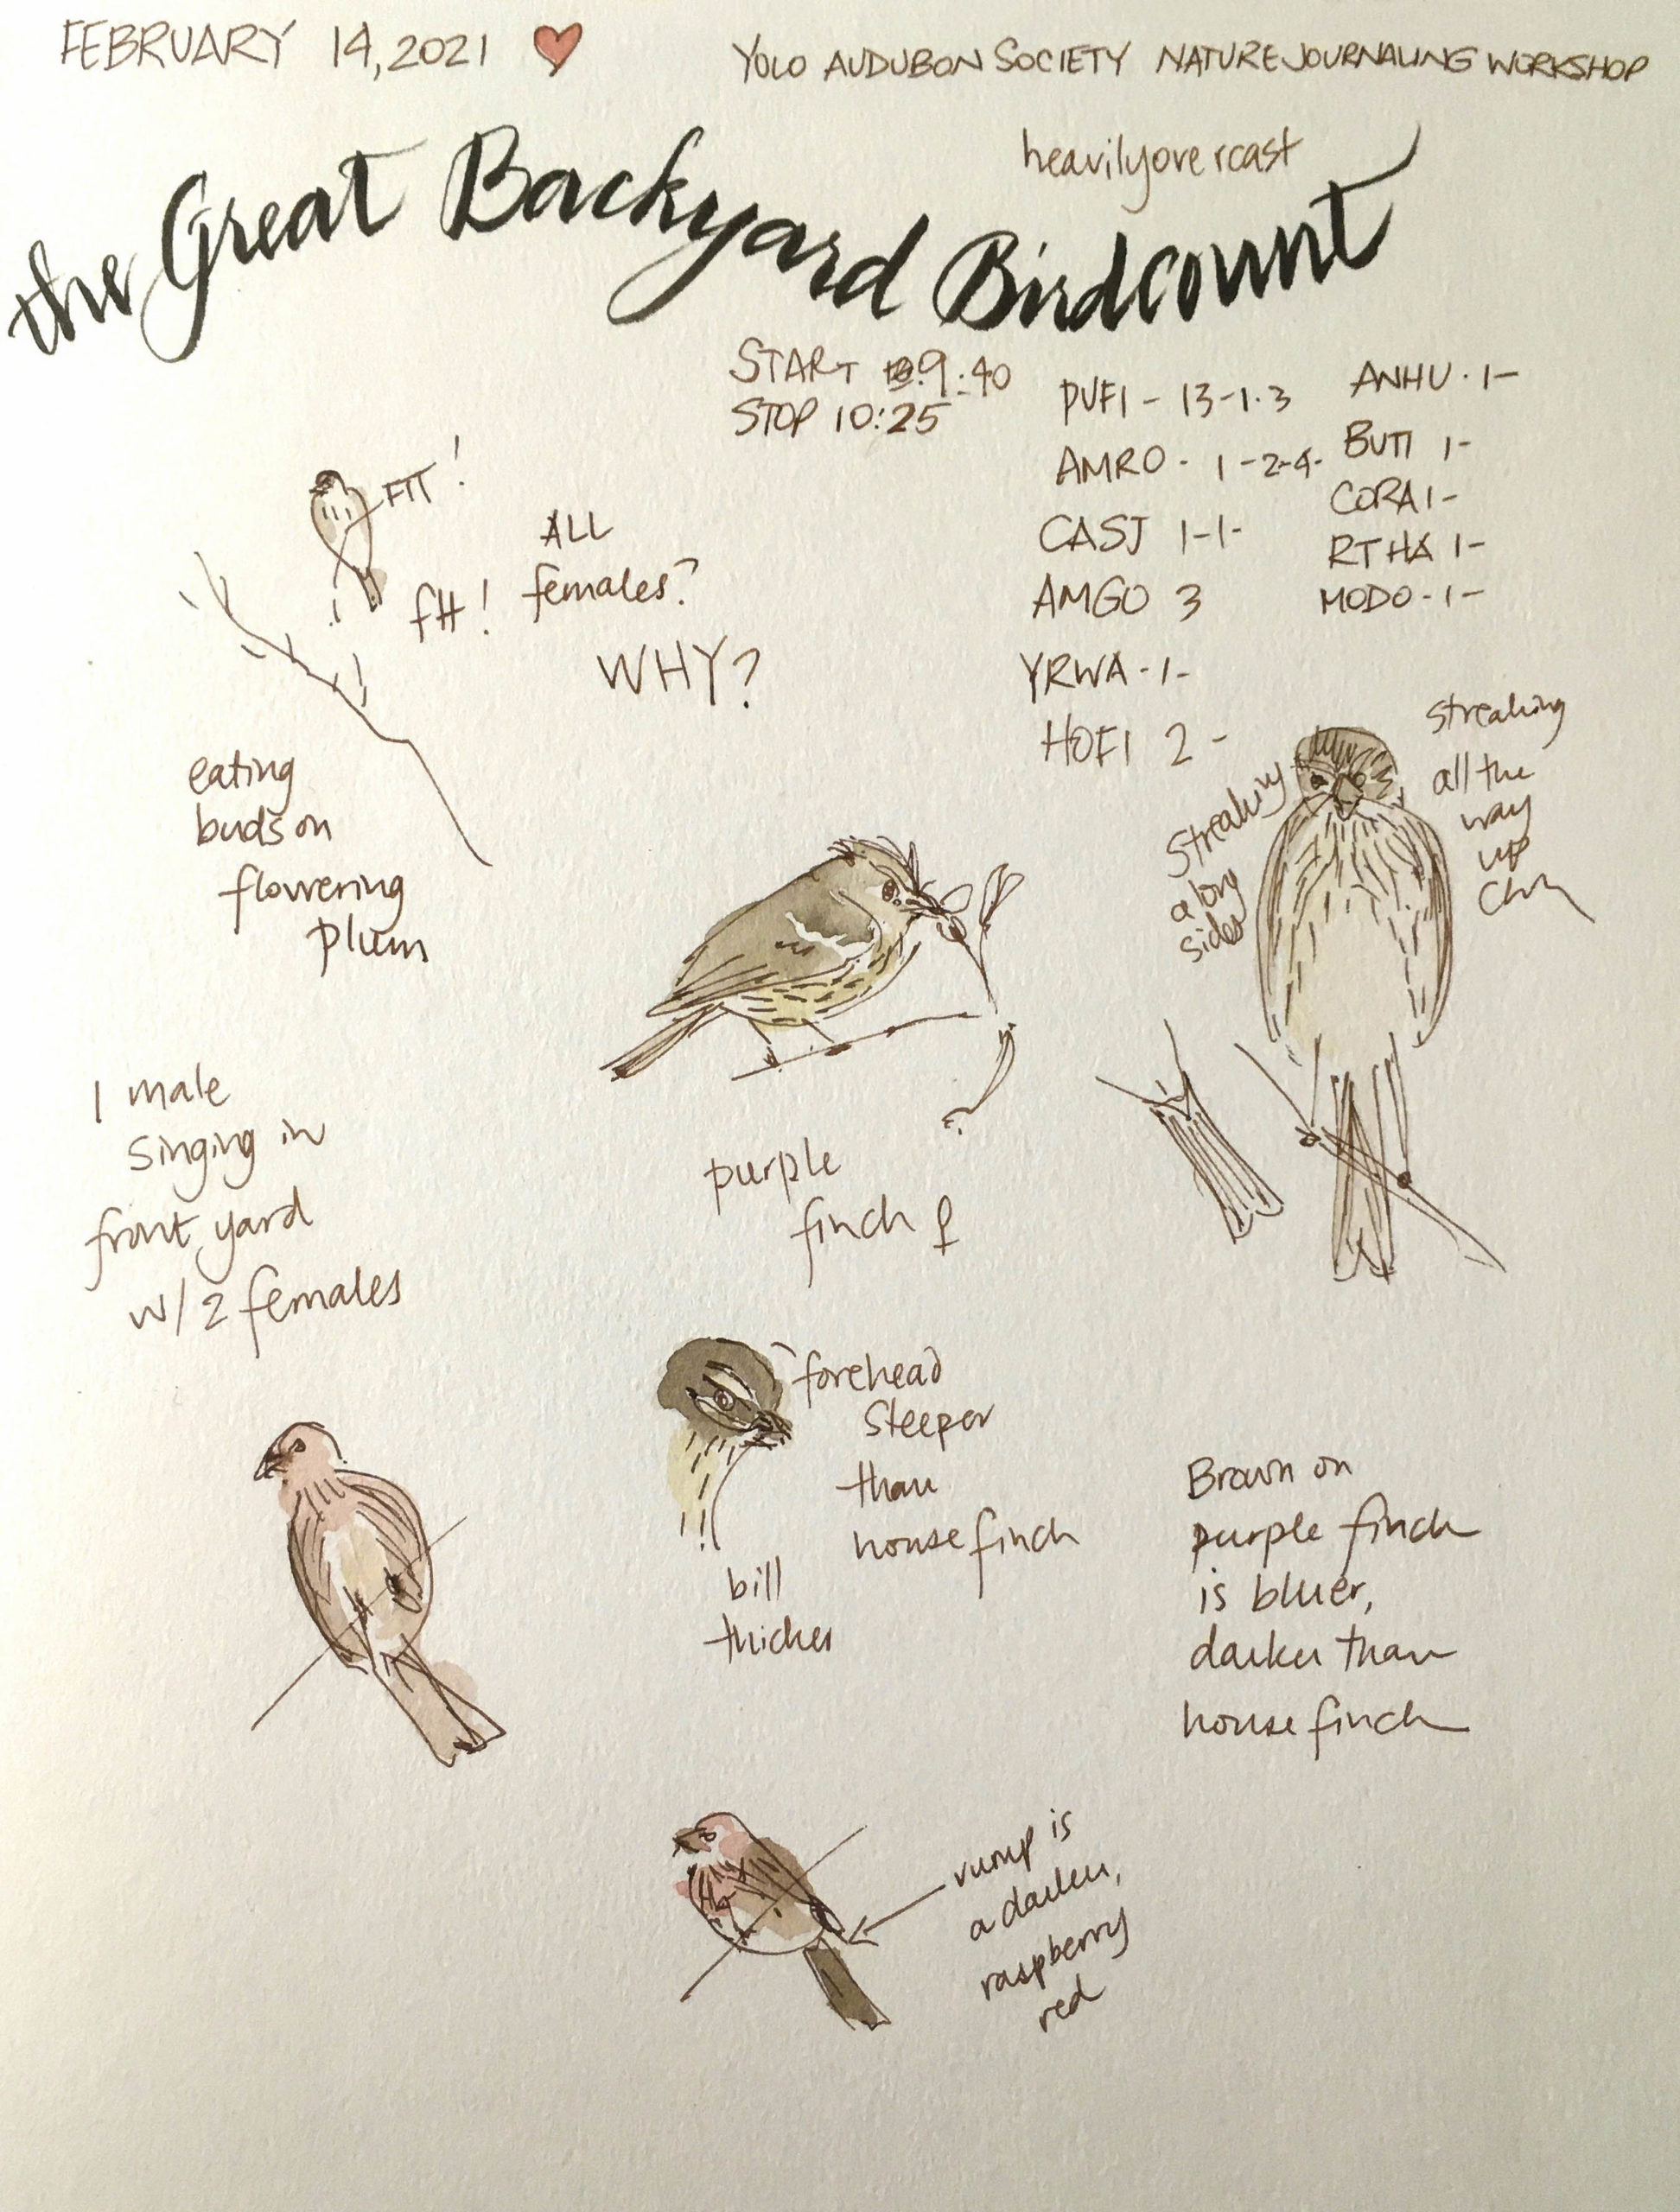 FEBRUARY 14, 2021
YOLO AUDUBON SOCIETY NATURE JOURNALING WORKSHOP
heavily overcast
the Great Backyard Birdcount
START 9:40
STOP 10:25
PUFI - 13-1-3
AMRO - 1-2-4-
CASJ 1-1-
AMGO 3
YRWA-1-
HOFI 2-
ANHU-1-
BUTI 1-
CORA 1-
RTHA 1-
MODO-1-
FTT!
ftt!
ALL
females?
WHY?
eating
buds on
flowering
plum
Streaking
along
sides
streaking
all the
way
up
chin
1 male
singing in
front yard
w/2 females
purple
finch ♀
forehead
steeper
than
house finch
bill
thicker
Brown on
purple finch
is bluer,
darker than
house finch
rump is
a darker,
raspberry
red